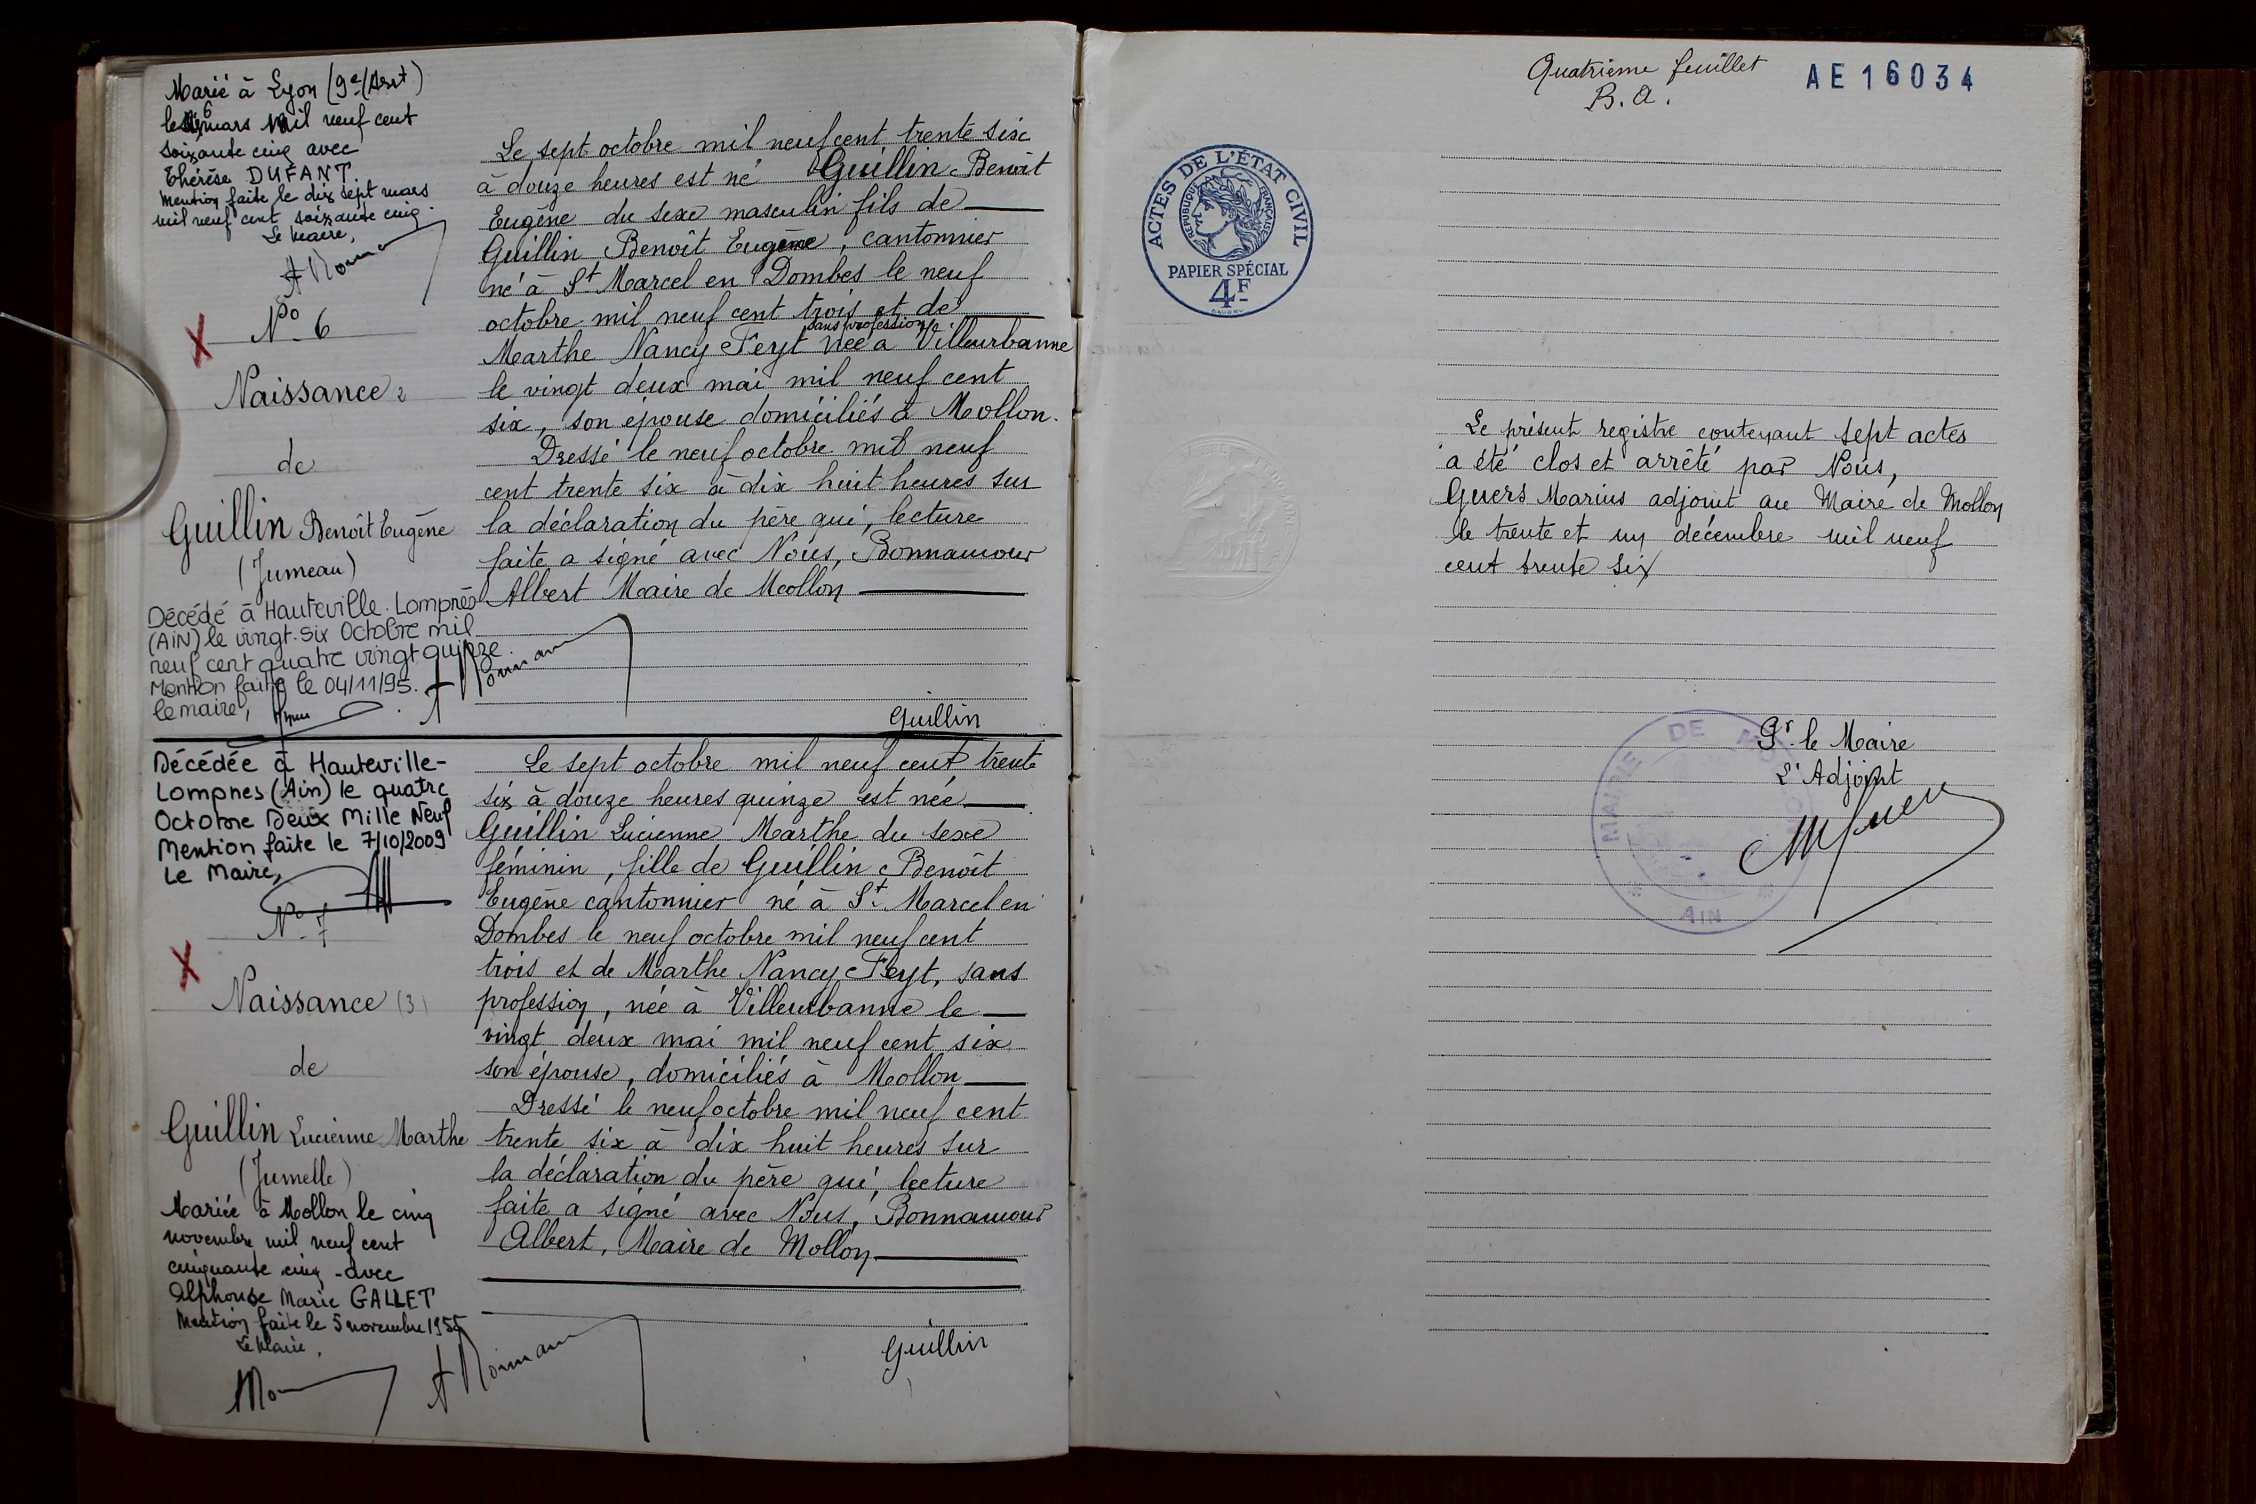 Marié à Lyon (9e Arrt)
le 6 mars mil neuf cent
soixante cinq avec
Thérèse DUFANT.
Mention faite le dix sept mars
mil neuf cent soixante cinq.
Le Maire,
No 6
Naissance 2
de
Guillin Benoît Eugène
(Jumeau)
Décédé à Hauteville-Lompnès
(AIN) le vingt-six Octobre mil
neuf cent quatre vingt quinze
Mention faite le 04/11/95.
le maire,
Le sept octobre mil neuf cent trente six
à douze heures est né Guillin Benoît
Eugène du sexe masculin fils de
Guillin Benoît Eugène, cantonnier
né à St Marcel en Dombes le neuf
octobre mil neuf cent trois et de
sans profession
Marthe Nancy Feyt née à Villeurbanne
le vingt deux mai mil neuf cent
six, son épouse domiciliés à Mollon.
Dressé le neuf octobre mil neuf
cent trente six à dix huit heures sur
la déclaration du père qui, lecture
faite a signé avec Nous, Bonnamour
Albert Maire de Mollon
Guillin
Décédée à Hauteville-
Lompnes (Ain) le quatre
Octobre Deux Mille Neuf
Mention faite le 7/10/2009
Le Maire,
No 7
Naissance (3)
de
Guillin Lucienne Marthe
(Jumelle)
Mariée à Mollon le cinq
novembre mil neuf cent
cinquante cinq avec
Alphonse Marie GALLET
Mention faite le 5 novembre 1955
Le Maire,
Le sept octobre mil neuf cent trente
six à douze heures quinze est née
Guillin Lucienne Marthe du sexe
féminin, fille de Guillin Benoît
Eugène cantonnier né à St Marcel en
Dombes le neuf octobre mil neuf cent
trois et de Marthe Nancy Feyt, sans
profession, née à Villeurbanne le
vingt deux mai mil neuf cent six
son épouse, domiciliés à Mollon
Dressé le neuf octobre mil neuf cent
trente six à dix huit heures sur
la déclaration du père qui, lecture
faite a signé avec Nous, Bonnamour
Albert, Maire de Mollon
Guillin
Quatrième feuillet
B. A.
AE16034
ACTES DE L'ÉTAT CIVIL
RÉPUBLIQUE FRANÇAISE
PAPIER SPÉCIAL
4F
Le présent registre contenant sept actes
a été clos et arrêté par Nous,
Guers Marius adjoint au Maire de Mollon
le trente et un décembre mil neuf
cent trente six
Pr le Maire
L'Adjoint
MAIRIE DE MOLLON
AIN